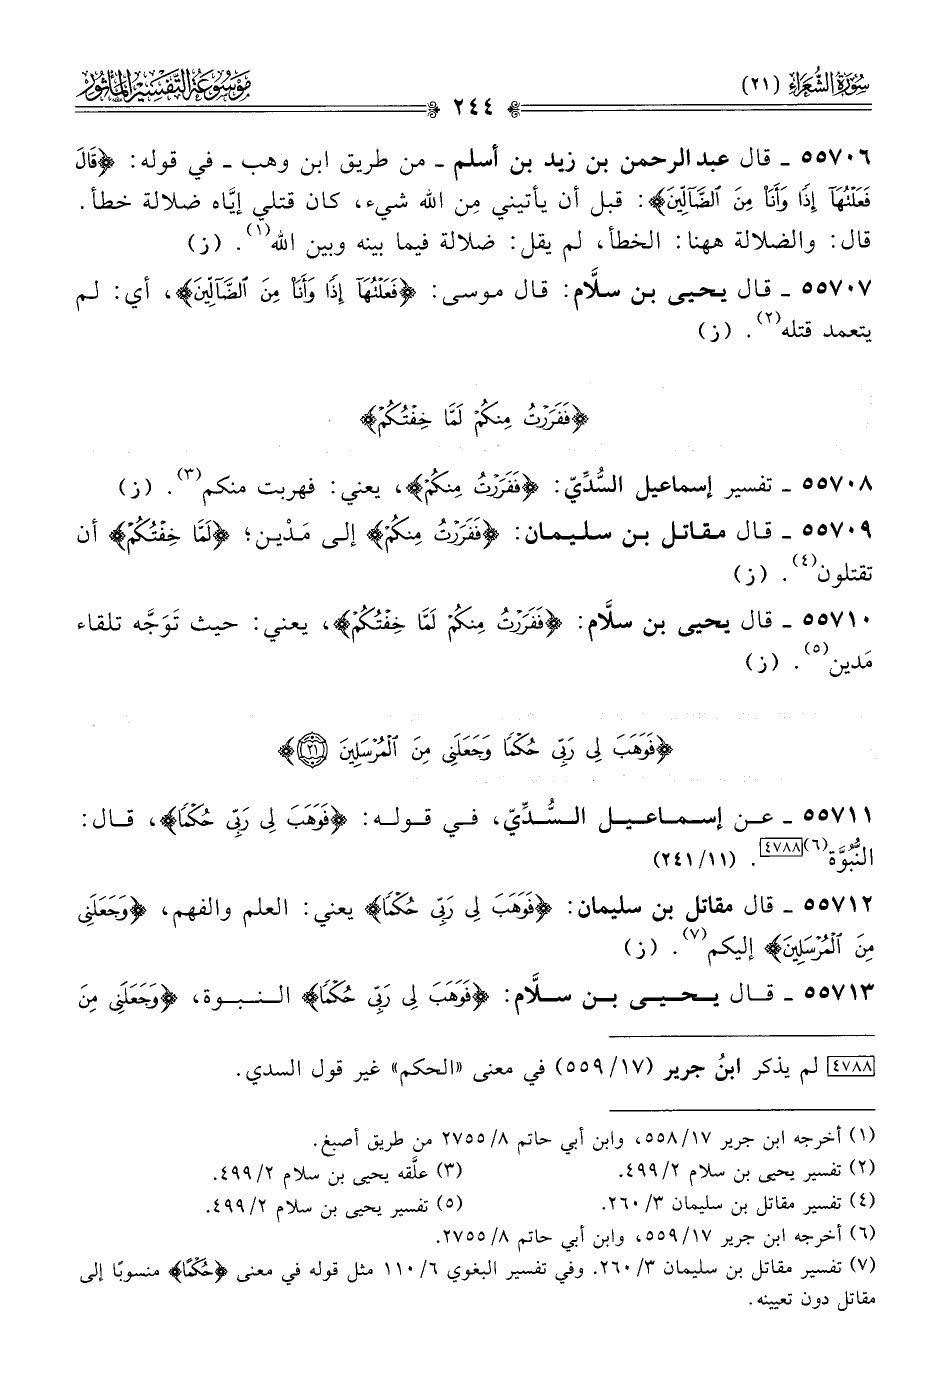 سُورَةُ الشُّعَرَاءِ (٢١)
٢٤٤
مَوْسُوعَةُ التَّفْسِيرِ المَأْثُورِ
٥٥٧٠٦ ـ قال عبد الرحمن بن زيد بن أسلم ـ من طريق ابن وهب ـ في قوله: ﴿قَالَ
فَعَلْتُهَآ إِذًا وَأَنَا۠ مِنَ ٱلضَّآلِّينَ﴾: قبل أن يأتيني مِن الله شيء، كان قتلي إيَّاه ضلالة خطأ.
قال: والضلالة ههنا: الخطأ، لم يقل: ضلالة فيما بينه وبين الله(١). (ز)
٥٥٧٠٧ ـ قال يحيى بن سلَّام: قال موسى: ﴿فَعَلْتُهَآ إِذًا وَأَنَا۠ مِنَ ٱلضَّآلِّينَ﴾، أي: لم
يتعمد قتله(٢). (ز)
﴿فَفَرَرْتُ مِنكُمْ لَمَّا خِفْتُكُمْ﴾
٥٥٧٠٨ ـ تفسير إسماعيل السُّدِّيّ: ﴿فَفَرَرْتُ مِنكُمْ﴾، يعني: فهربت منكم(٣). (ز)
٥٥٧٠٩ ـ قال مقاتل بن سليمان: ﴿فَفَرَرْتُ مِنكُمْ﴾ إلى مَدْين؛ ﴿لَمَّا خِفْتُكُمْ﴾ أن
تقتلون(٤). (ز)
٥٥٧١٠ ـ قال يحيى بن سلَّام: ﴿فَفَرَرْتُ مِنكُمْ لَمَّا خِفْتُكُمْ﴾، يعني: حيث تَوَجَّه تلقاء
مَدين(٥). (ز)
﴿فَوَهَبَ لِى رَبِّى حُكْمًا وَجَعَلَنِى مِنَ ٱلْمُرْسَلِينَ ٢١﴾
٥٥٧١١ ـ عن إسماعيل السُّدِّيّ، في قوله: ﴿فَوَهَبَ لِى رَبِّى حُكْمًا﴾، قال:
النُّبُوَّة(٦)[٤٧٨٨]. (١١/ ٢٤١)
٥٥٧١٢ ـ قال مقاتل بن سليمان: ﴿فَوَهَبَ لِى رَبِّى حُكْمًا﴾ يعني: العلم والفهم، ﴿وَجَعَلَنِى
مِنَ ٱلْمُرْسَلِينَ﴾ إليكم(٧). (ز)
٥٥٧١٣ ـ قال يحيى بن سلَّام: ﴿فَوَهَبَ لِى رَبِّى حُكْمًا﴾ النبوة، ﴿وَجَعَلَنِى مِنَ
[٤٧٨٨] لم يذكر ابنُ جرير (١٧/ ٥٥٩) في معنى «الحكم» غير قول السدي.
(١) أخرجه ابن جرير ١٧/ ٥٥٨، وابن أبي حاتم ٨/ ٢٧٥٥ من طريق أصبغ.
(٢) تفسير يحيى بن سلام ٢/ ٤٩٩. (٣) علَّقه يحيى بن سلام ٢/ ٤٩٩.
(٤) تفسير مقاتل بن سليمان ٣/ ٢٦٠. (٥) تفسير يحيى بن سلام ٢/ ٤٩٩.
(٦) أخرجه ابن جرير ١٧/ ٥٥٩، وابن أبي حاتم ٨/ ٢٧٥٥.
(٧) تفسير مقاتل بن سليمان ٣/ ٢٦٠. وفي تفسير البغوي ٦/ ١١٠ مثل قوله في معنى ﴿حُكْمًا﴾ منسوبًا إلى
مقاتل دون تعيينه.